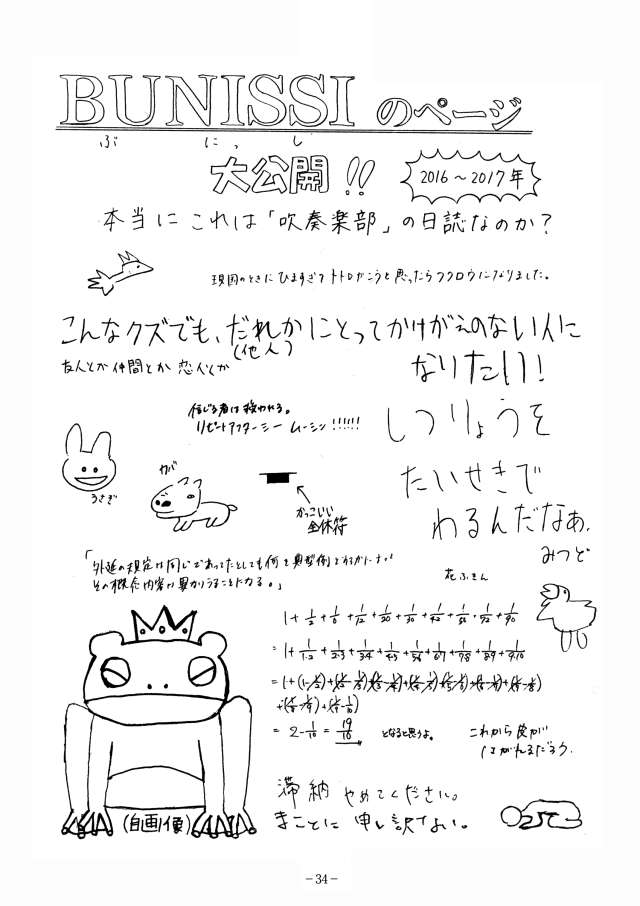 BUNISSI のページ
ぶにっし
大公開!!
2016～2017年
本当にこれは「吹奏楽部」の日誌なのか?
現国のときにひますぎてトトロかこうと思ったらフクロウになりました。
こんなクズでも、だれかにとってかけがえのない人に
(他人)
友人とか仲間とか恋人とか
なりたい!
信じる者は救われる。
リピートアフターシー ムーシン!!!!!!
しつりょうを
たいせきで
わるんだなぁ。
みつど
うさぎ
カバ
かっこいい
全休符
「外延の規定は同じであったとしても何を典型例とするかによって
その概念内容は異なりうることになる。」
花ふさん
1+1/2+1/6+1/12+1/20+1/30+1/42+1/56+1/72+1/90
=1+1/1·2+1/2·3+1/3·4+1/4·5+1/5·6+1/6·7+1/7·8+1/8·9+1/9·10
=2-1/10=19/10 となると思うよ。
これから皮が
はがれるだろう。
滞納 やめてください。
まことに申し訳ない。
(自画像)
-34-